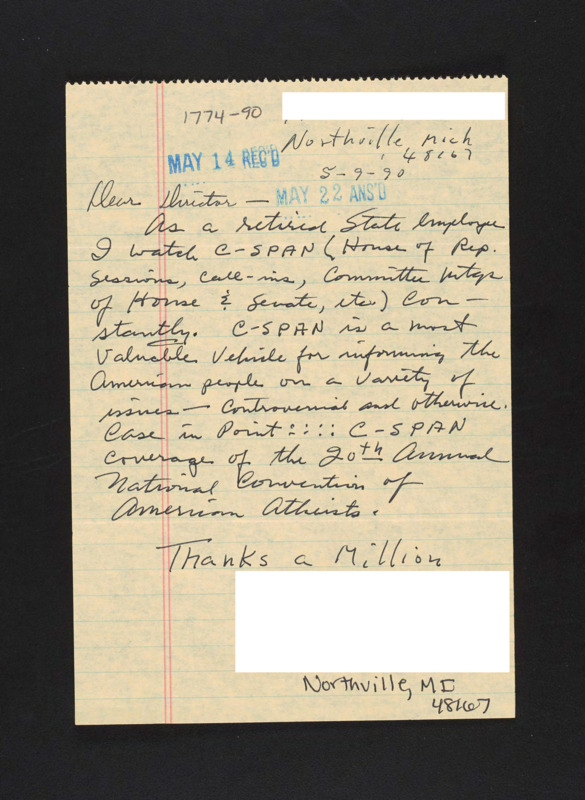 1774-90
Northville, Mich
48167
MAY 14 REC'D
5-9-90
Dear Director —
MAY 22 ANS'D
As a retired State employee
I watch C-SPAN (House of Rep.
sessions, call-ins, Committee mtgs
of House & Senate, etc.) con-
stantly. C-SPAN is a most
valuable vehicle for informing the
American people on a variety of
issues — controversial and otherwise.
Case in Point :::: C-SPAN
coverage of the 20th Annual
National Convention of
American Atheists.
Thanks a Million
Northville, MI
48167